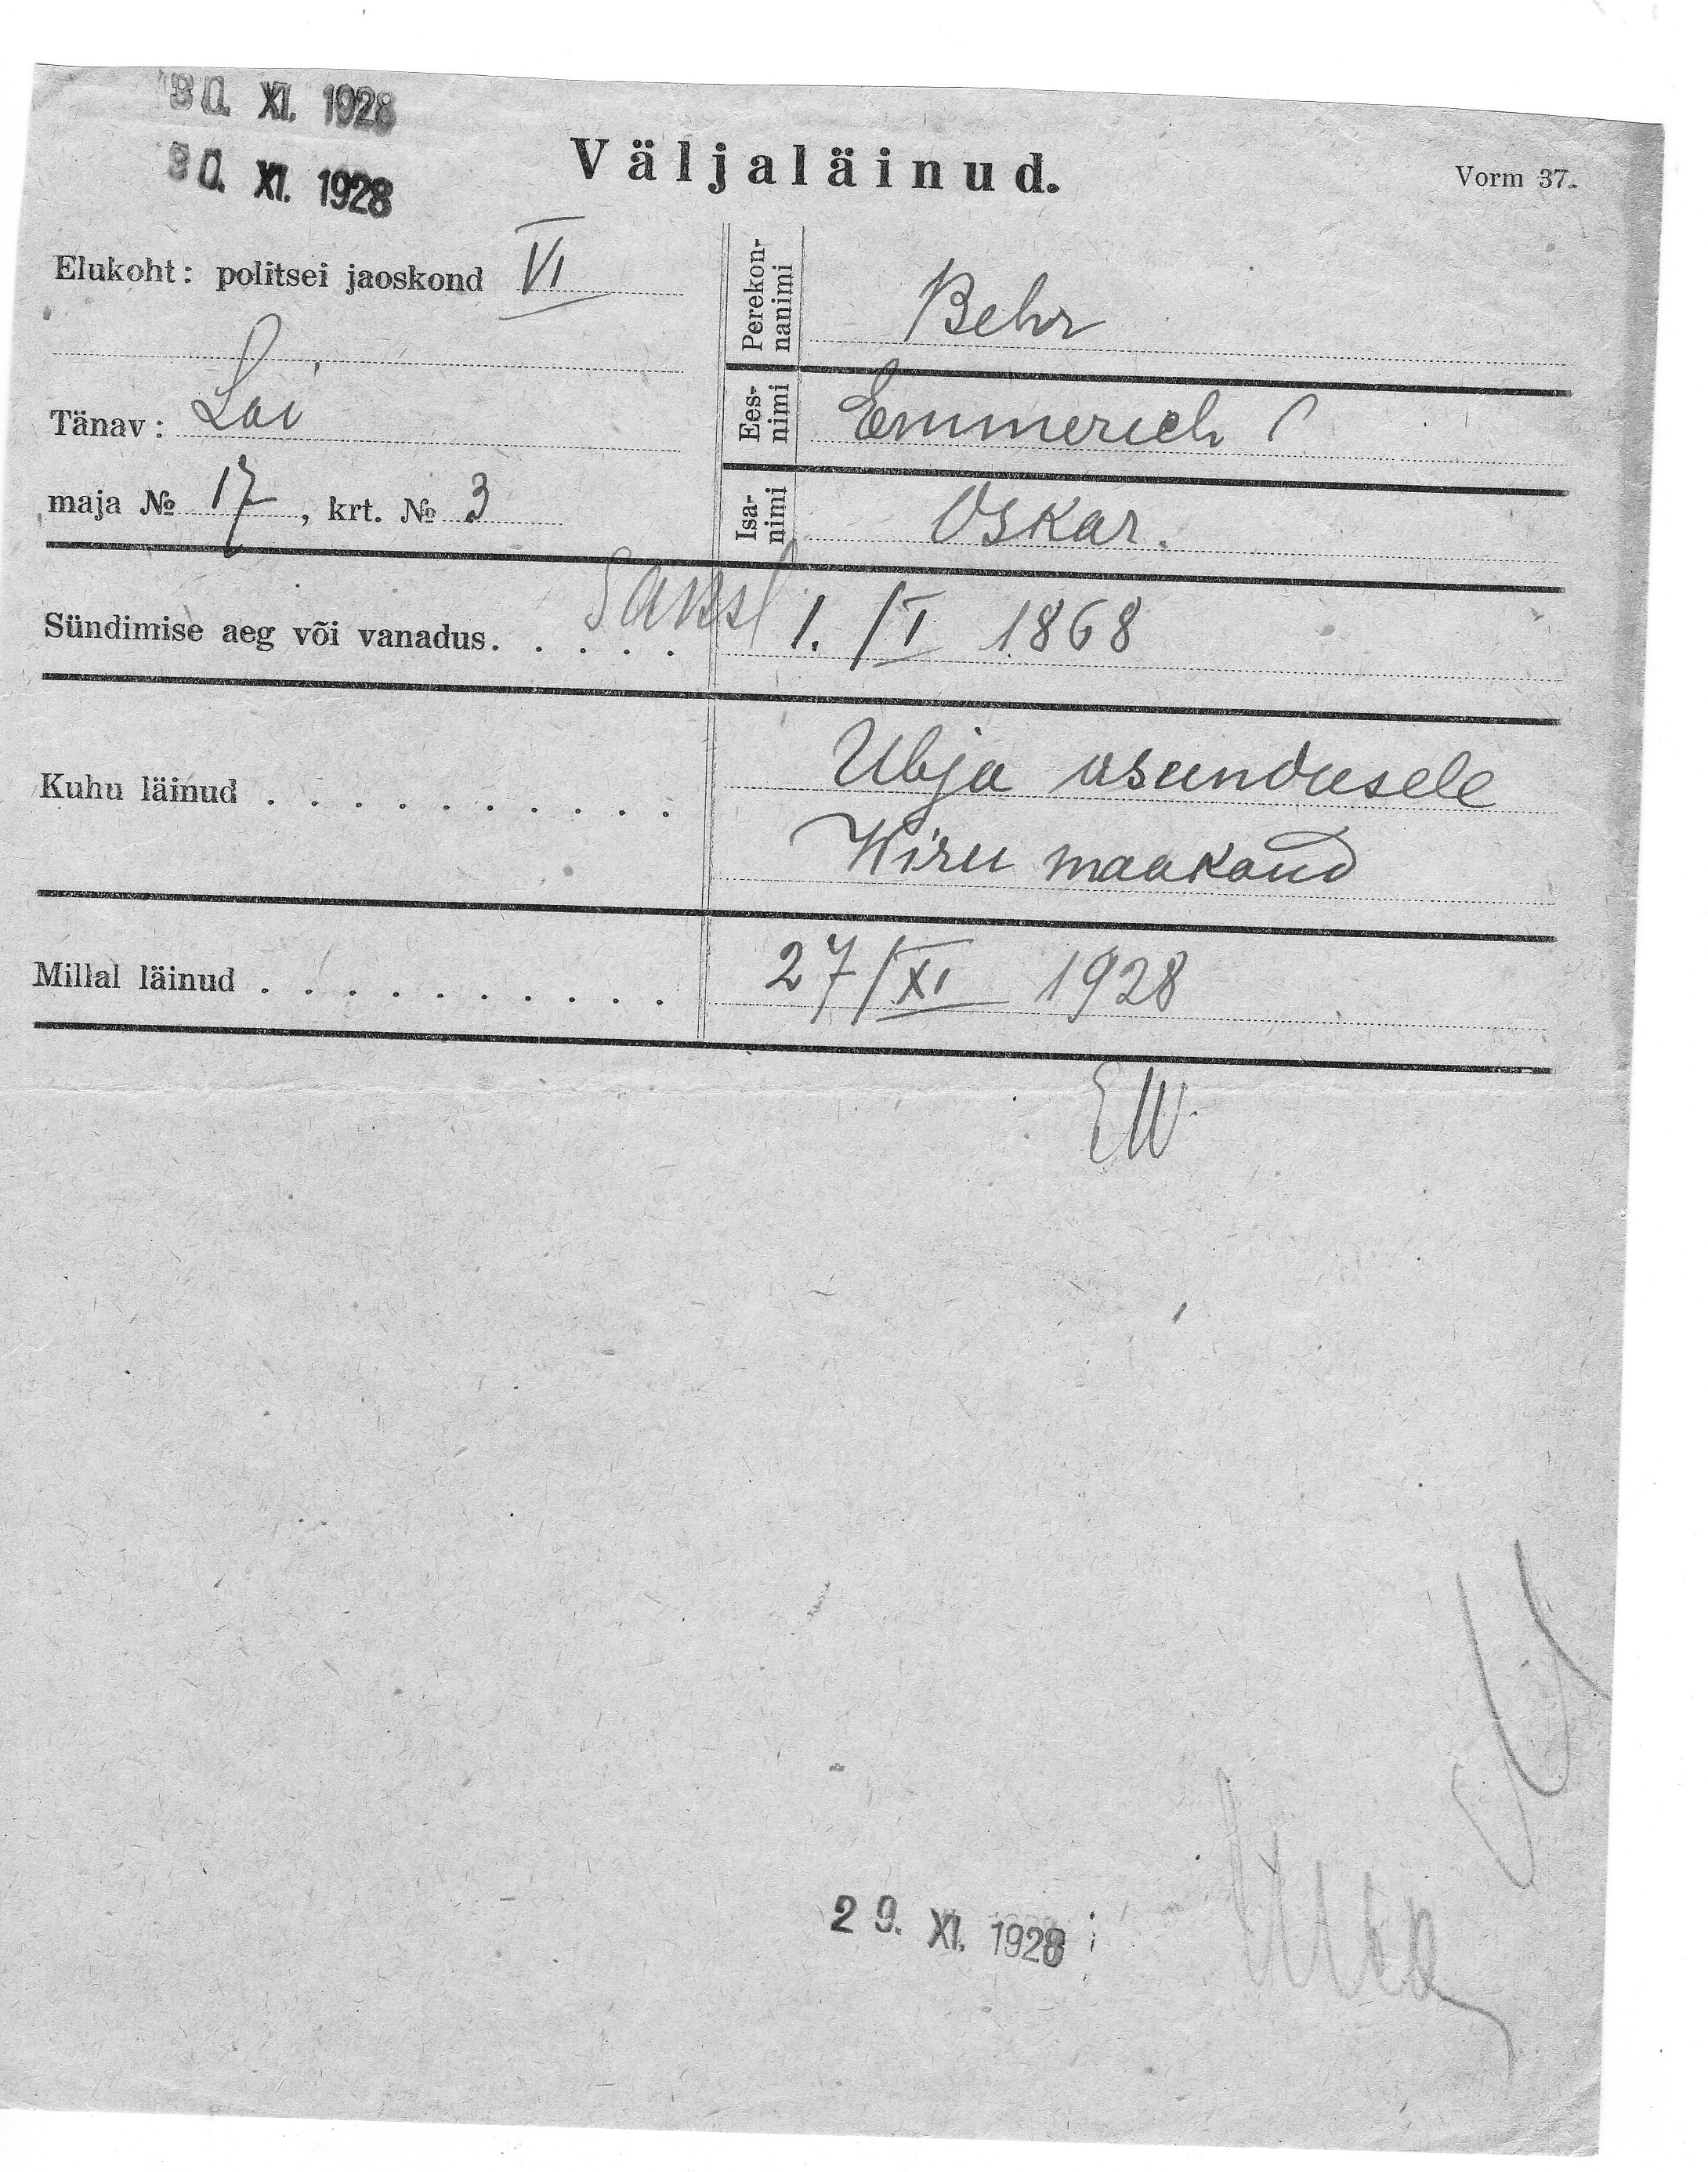 30. XI. 1928
30. XI. 1928
Väljaläinud.
Vorm 37.
Elukoht: politsei jaoskond VI
Tänav: Lai
maja № 17, krt. № 3
Perekon-
nanimi Behr
Ees-
nimi Emmerich
Isa-
nimi Oskar.
Sündimise aeg või vanadus. . . . . 1. / I 1868
Kuhu läinud . . . . . . . . . . Ubja asundusele
Wiru maakond
Millal läinud . . . . . . . . . . 27/XI 1928
EW
29. XI. 1928